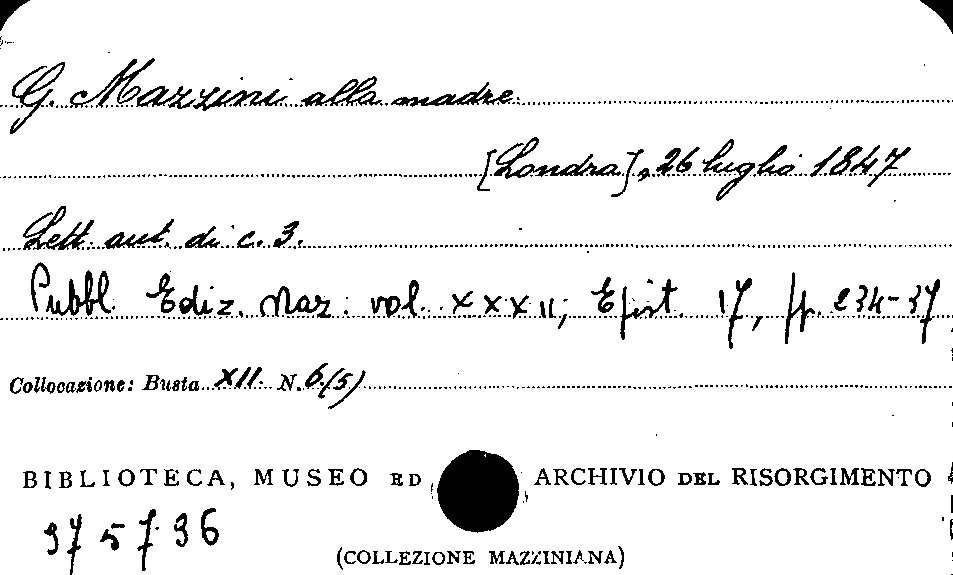 G. Mazzini alla madre
[Londra], 26 luglio 1847
Lett. aut. di c. 3.
Pubbl. Ediz. Naz. vol. XXXII, Epist. 17, pp. 234-37
Collocazione: Busta XII. N. 6(5)
BIBLIOTECA, MUSEO ED ARCHIVIO DEL RISORGIMENTO
375736
(COLLEZIONE MAZZINIANA)